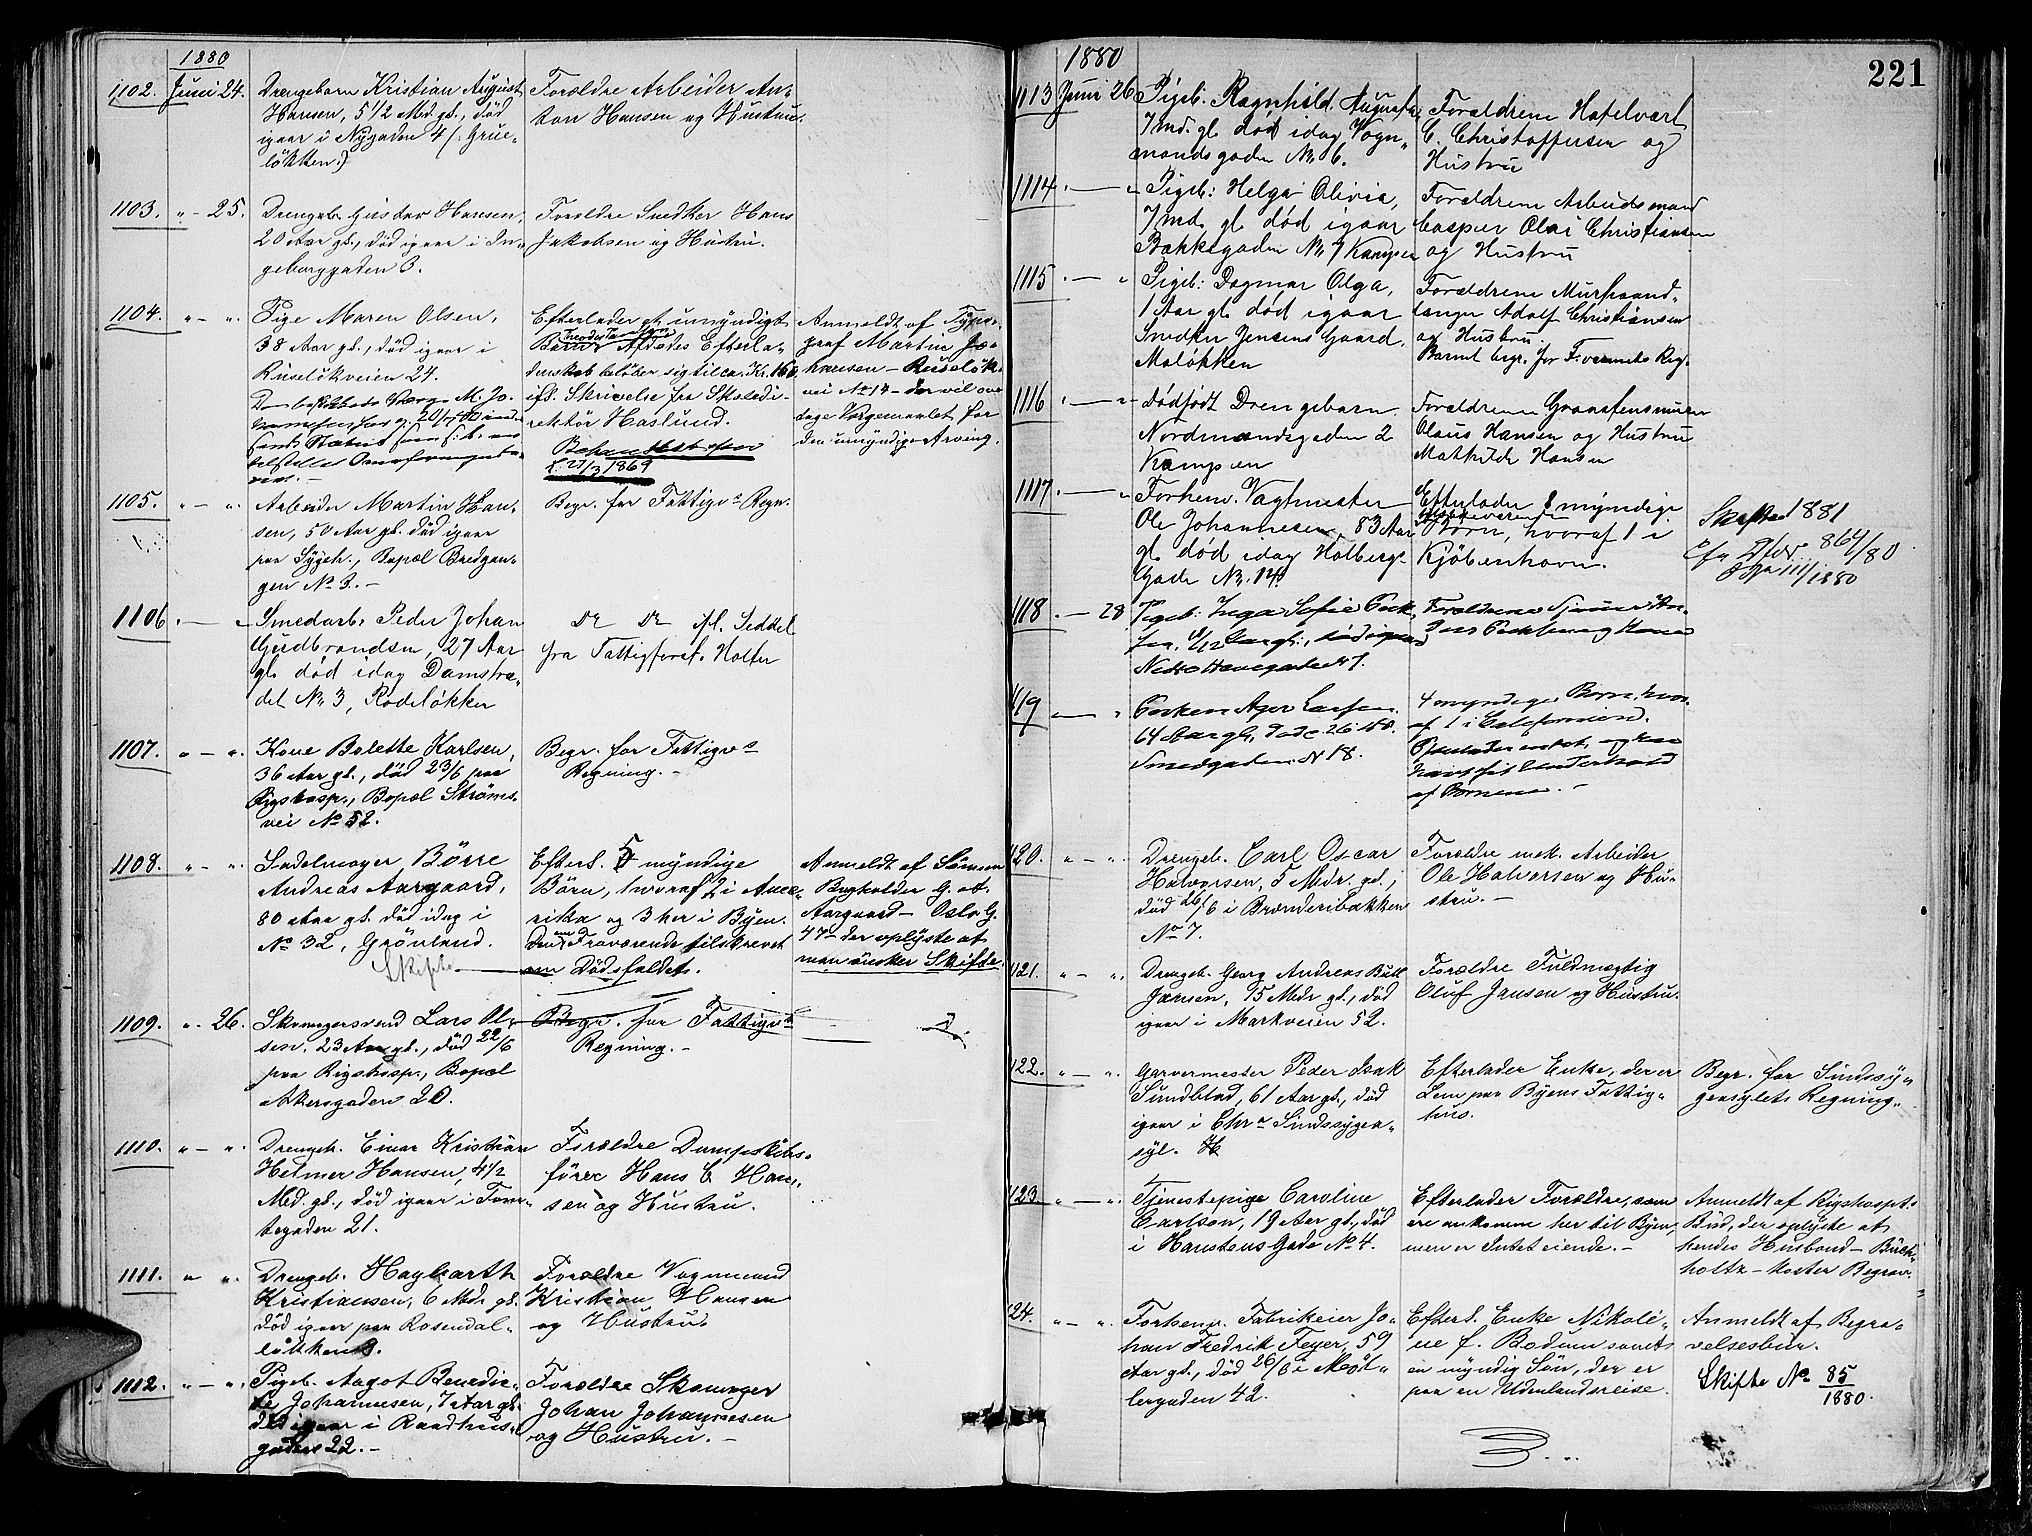 1880
1102. Juni 24. Drengebarn Kristian August
Hansen, 5 1/2 Md. gl., död
igaar i Nygaden 4 /: Grue-
lökken.)
Forældre Arbeider An-
ton Hansen og Hustru.
1103. " - 25. Drengeb. Gustav Hansen,
20 Aar gl., död igaar i In-
geborggaden 3.
Forældre Snedker Hans
Jakobsen og Hustru.
1104. " - " Pige Maren Olsen,
38 Aar gl., död igaar i
Ruselökveien 24.
Efterlader et umyndigt
Barn. Afdödes Efterla-
denskab belöber sig til ca. Kr. 160
ifl. Skrivelse fra Skoledi-
rektör Haslund.
1869
Anmeldt af Typo-
graf Martin Jo-
hansen - Ruselök-
vei No 14 - der vil over
tage Værgemaalet for
den umyndige Arving.
1105. " - " Arbeider Martin Han-
sen, 50 Aar gl. död igaar
paa Sygeh., Bopæl Bredgan-
gen No 3. -
Begr. for Fattigvs Regn.
1106 - " Smedarb. Peder Johan
Gudbrandsen, 27 Aar
gl. död idag Damstræ-
det No 3, Rodelökken
Do Do ifl. Seddel
fra Fattigforst. Holter
1107. " - " Kone Bolette Karlsen,
36 Aar gl., död 23/6 paa
Rigshosp., Bopæl Ströms-
vei No 52.
Begr. for Fattigvs
Regning. -
1108. " - " Sadelmager Börre
Andreas Aargaard,
80 Aar gl. död idag i
No 32, Grönland.
Skifte
Efterl. 5 myndige
Börn, hvoraf 2 i Ame-
rika og 3 her i Byen.
Fraværende tilskrevet
om Dödsfaldet.
Anmeldt af Sönnen
Bogholder G. A.
Aargaard - Oslo G.
47 der oplyste at
man önsker Skifte.
1109. " 26. Skomagersvend Lars Ol-
sen, 23 Aar gl., död 22/6
paa Rigshosp., Bopæl
Akersgaden 20.
Begr. for Fattigvs
Regning. -
1110. " - " Drengeb. Einar Kristian
Helmer Hansen, 4 1/2
Md. gl., död igaar i Tomte-
tegaden 21.
Forældre Dampskibs-
förer Hans E. Han-
sen og Hustru.
1111. " " Drengeb. Haybarth
Kristiansen, 6 Mdr gl.
död igaar paa Rosendal-
lökken 3.
Forældre Vognmand
Kristian Hansen
og Hustru.
1112. " - " Pigeb. Aagot Benedic-
te Johannesen, 7 Aar gl.
död igaar i Raadhus-
gaden 22. -
Forældre Skomager
Johan Johannesen
og Hustru. -
221
1880
1113 Juni 26 Pigeb. Ragnhild Augusta,
7 md. gl. död idag Vogn-
mandsgaden No 6.
Forældrene Hotelvært
C. Christoffersen og
Hustru
1114 - " Pigeb: Helga Olivia,
7 md. gl. död igaar
Bakkegaden No 7 Kampen
Forældrene Arbeidsmand
Casper Olai Christiansen
og Hustru
1115 - " Pigeb: Dagmar Olga,
1 Aar gl. död igaar
Snedker Jensens Gaard,
Maløkken
Forældrene Murhaand-
langer Adolf Christiansen
og Hustru.
Barnet begr. for Regn.
1116 - " dödfödt Drengebarn
Nordmandsgaden 2
Kampen
Forældrene
Olaus Hansen og Hustru
Mathilde Hansen
1117. - " Forhenv. Vagtmester
Ole Johannesen, 83 Aar
gl. død idag Holbergs-
Gade No. 14
Efterlader 8 myndige
Börn, hvoraf 1 i
Kjöbenhavn.
Skifte 1881
864/80
1880
1118 - 28 Pigeb. Inga Sofie
Forældrene
1119 - "
64 Aar gl., död 26 ds.
Smedgaden No 18.
4 myndige Börn, hvor-
af 1 i Californien.
af Börnene. -
120. " - " Drengeb. Carl Oscar
Halvorsen, 5 Mdr. gl.,
död 26/6 i Brænderibakken
No 7.
Forældre mek. Arbeider
Ole Halvorsen og Hu-
stru. -
121. " - " Drengeb. Georg Andreas Bull
Jansen, 15 Mdr gl., död
igaar i Markveien 52.
Forældre Fuldmægtig
Oluf Jansen og Hustru.
122. " - " Garvermester Peder Isak
Sundblad, 61 Aar gl., död
igaar i Chra Sindssygea-
syl.
Efterlader Enke, der er
Lem paa Byens Fattig-
hus.
Begr. for Sindssy-
geasylets Regning.
123 " - " Tjenestepige Caroline
Carlson, 19 Aar gl., död
i Hanstens Gade No 4.
Efterlader Forældre, som
ere ankomne her til Byen,
men er Intet eiende. -
Anmeldt af Rigshospt.
Bud, der oplyste at
hendes Husbond - Buch-
holtz - koster Begrav.
124. " - " Forhenv. Fabrikeier Jo-
han Fredrik Feyer, 59
Aar gl., död 26/6 i Möl-
lergaden 42.
Efterl. Enke Nikoli-
ne f. Bodum samt
en myndig Sön, der er
paa en Udenlandsreise.
Anmeldt af Begra-
velsesbur.
Skifte No 85/1880.